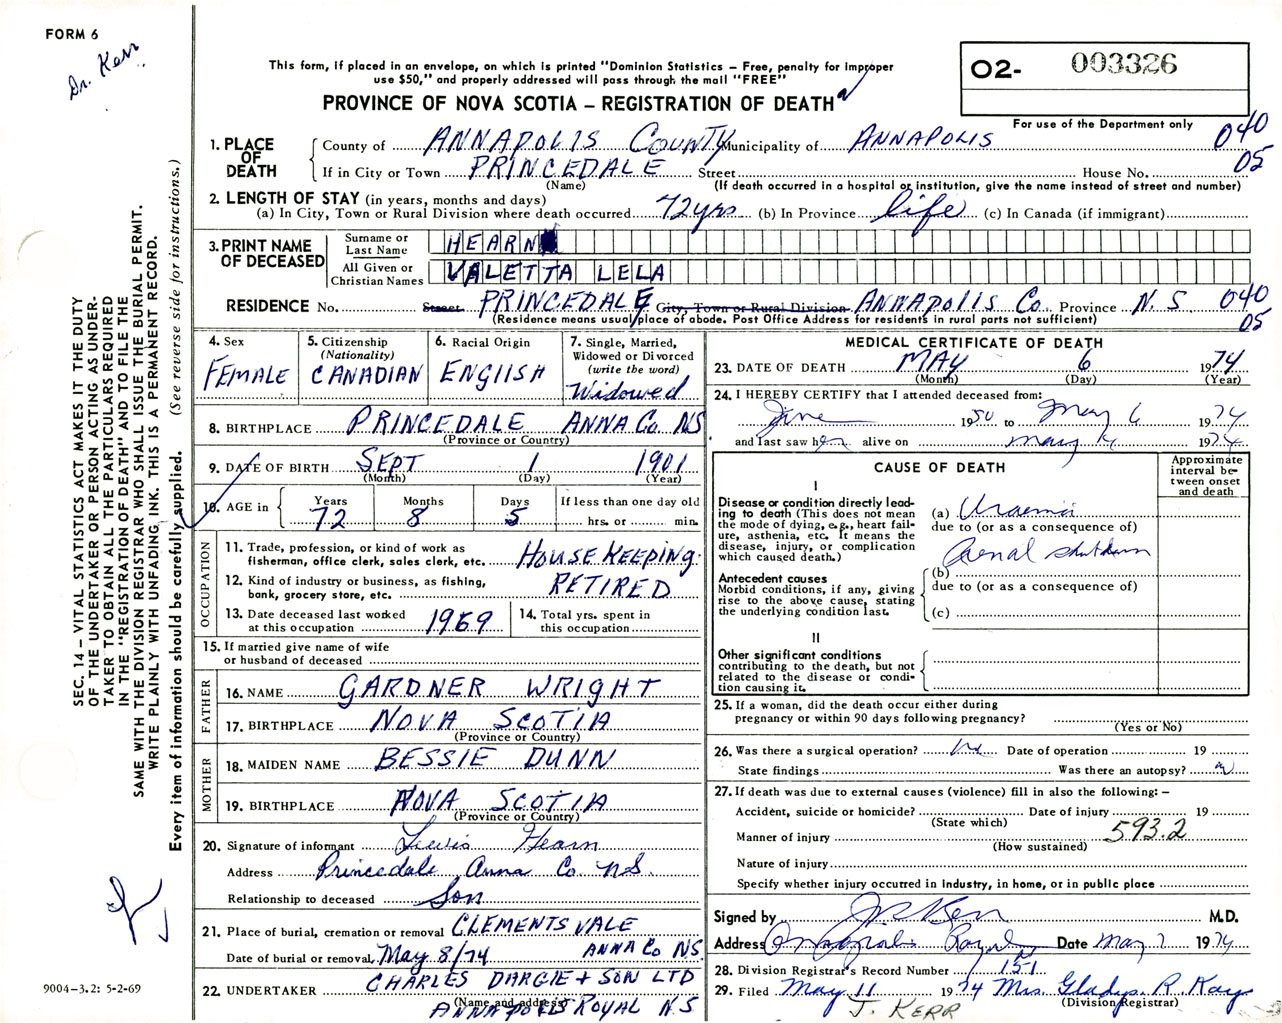 FORM 6
Dr. Kerr
This form, if placed in an envelope, on which is printed "Dominion Statistics – Free, penalty for improper
use $50," and properly addressed will pass through the mail "FREE"
PROVINCE OF NOVA SCOTIA – REGISTRATION OF DEATH
02- 003326
For use of the Department only
040
05
1. PLACE OF DEATH
County of ANNAPOLIS COUNTY Municipality of ANNAPOLIS
If in City or Town PRINCEDALE Street House No.
(Name) (If death occurred in a hospital or institution, give the name instead of street and number)
2. LENGTH OF STAY (in years, months and days)
(a) In City, Town or Rural Division where death occurred 72 yrs (b) In Province life (c) In Canada (if immigrant)
3. PRINT NAME OF DECEASED
Surname or Last Name HEARN
All Given or Christian Names VALETTA LELA
RESIDENCE No. Street PRINCEDALE City, Town or Rural Division ANNAPOLIS Co. Province N.S 040
(Residence means usual place of abode. Post Office Address for residents in rural parts not sufficient) 05
4. Sex FEMALE
5. Citizenship (Nationality) CANADIAN
6. Racial Origin ENGlISH
7. Single, Married, Widowed or Divorced (write the word) Widowed
8. BIRTHPLACE PRINCEDALE ANNA Co. NS
(Province or Country)
9. DATE OF BIRTH SEPT 1 1901
(Month) (Day) (Year)
10. AGE in Years 72 Months 8 Days 5 If less than one day old hrs. or min.
OCCUPATION
11. Trade, profession, or kind of work as fisherman, office clerk, sales clerk, etc. HOUSE KEEPING.
12. Kind of industry or business, as fishing, bank, grocery store, etc. RETIRED
13. Date deceased last worked at this occupation 1969
14. Total yrs. spent in this occupation
15. If married give name of wife or husband of deceased
FATHER
16. NAME GARDNER WRIGHT
17. BIRTHPLACE NOVA SCOTIA
(Province or Country)
MOTHER
18. MAIDEN NAME BESSIE DUNN
19. BIRTHPLACE NOVA SCOTIA
(Province or Country)
20. Signature of informant Lewis Hearn
Address Princedale Anna Co N.S.
Relationship to deceased Son
21. Place of burial, cremation or removal CLEMENTSVALE
Date of burial or removal May 8/74 ANNA Co N.S.
22. UNDERTAKER CHARLES DARGIE + SON LTD
(Name and address)
ANNAPOLIS ROYAL N.S
MEDICAL CERTIFICATE OF DEATH
23. DATE OF DEATH MAY 6 1974
(Month) (Day) (Year)
24. I HEREBY CERTIFY that I attended deceased from:
June 1950 to May 6 1974
and last saw her alive on May 1974
CAUSE OF DEATH
Approximate interval between onset and death
I
Disease or condition directly leading to death (This does not mean the mode of dying, e.g., heart failure, asthenia, etc. It means the disease, injury, or complication which caused death.)
(a) Uraemia
due to (or as a consequence of)
Renal shutdown
Antecedent causes
Morbid conditions, if any, giving rise to the above cause, stating the underlying condition last.
(b)
due to (or as a consequence of)
(c)
II
Other significant conditions
contributing to the death, but not related to the disease or condition causing it.
25. If a woman, did the death occur either during
pregnancy or within 90 days following pregnancy?
(Yes or No)
26. Was there a surgical operation? No Date of operation 19
State findings Was there an autopsy?
27. If death was due to external causes (violence) fill in also the following: –
Accident, suicide or homicide? Date of injury 19
(State which)
Manner of injury 593.2
(How sustained)
Nature of injury
Specify whether injury occurred in industry, in home, or in public place
Signed by Kerr M.D.
Address Annapolis Royal Date May 7 1974
28. Division Registrar's Record Number 151
29. Filed May 11 1974 Mrs Gladys R. Kaye
(Division Registrar)
J. KERR
SEC. 14 – VITAL STATISTICS ACT MAKES IT THE DUTY
OF THE UNDERTAKER OR PERSON ACTING AS UNDER-
TAKER TO OBTAIN ALL THE PARTICULARS REQUIRED
IN THE "REGISTRATION OF DEATH" AND TO FILE THE
SAME WITH THE DIVISION REGISTRAR WHO SHALL ISSUE THE BURIAL PERMIT.
WRITE PLAINLY WITH UNFADING INK. THIS IS A PERMANENT RECORD.
Every item of information should be carefully supplied. (See reverse side for instructions.)
9004-3.2: 5-2-69